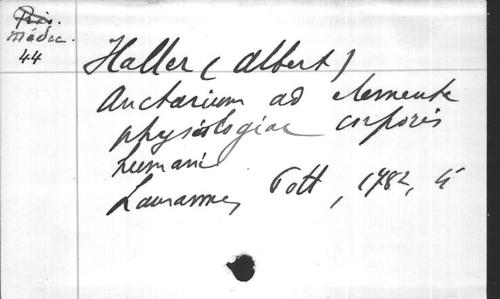 Médec.
44
Haller (Albert)
Auctarium ad elementa
physiologiae corporis
humani
Lausanne, Pott, 1782, 4